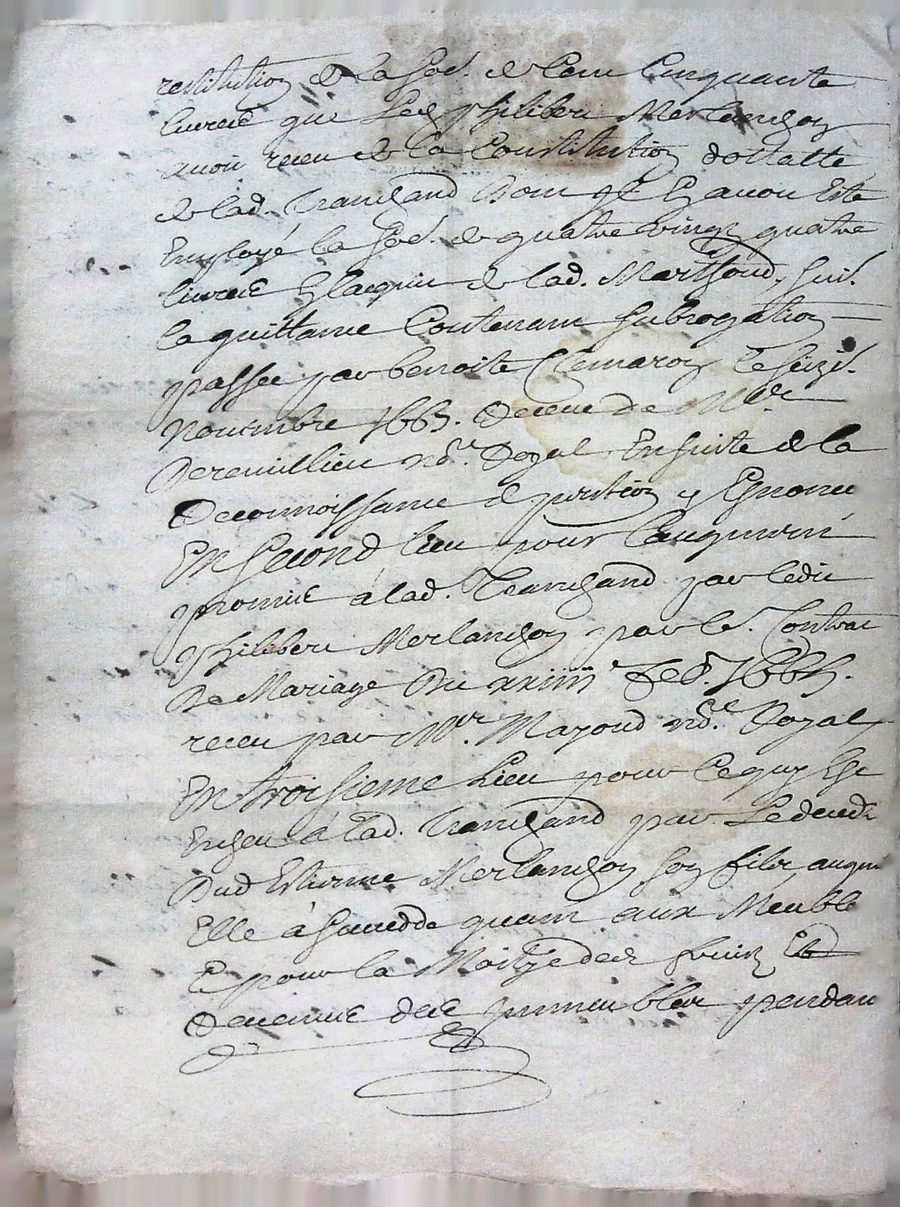 restitution de la So.e de Cent Cinquante
livres que led Philibert Merlanchon
avoit receu de la Constitution dottalle
de lad. Tranchand Dont Il Et avoit Esté
Employé la So.e de quatre vingt quatre
livres Et acquis de lad. Marthoud, suiv.
la quittance Contenant Subrogation
passée par benoite Clemaron le seizi.
Novembre 1665. Receue de M.re
Dereuillieu no.re Royal Ensuite de la
Reconnoissance de portion y Enoncée
En Second lieu pour l'augment
promis à lad. Tranchand par ledit
Philibert Merlanchon par le Contrat
De Mariage Du xxiiii.e feb. 1665.
receu par M.re Mazoud no.re Royal
En troisieme Lieu pour ce quy Est
Escheu à Lad. Tranchand par Le deceds
Dud Estienne Merlanchon son fils auquel
Elle à succedde quant aux Meubles
Et pour la Moitye des fruits Et
Revenus des Immeubles pendant